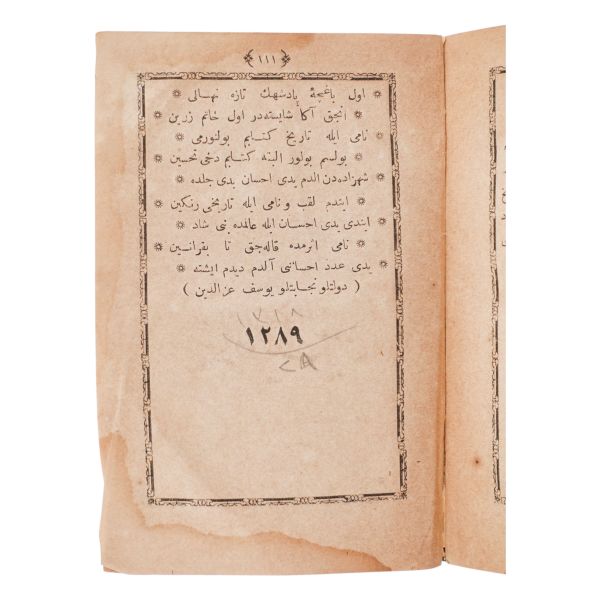 ١١١
اول باغچهٔ پادشهك تازه نهالی
انجق آكا شایسته‌در اول خاتم زرین
نامی ایله تاریخ كتابم بولنورمی
بولسم بولور البته كتابم دخی تحسین
شهزاده‌دن الدم یدی احسان یدی جلده
ایندم لقب و نامی ایله تاریخی رنكین
ایندی یدی احسان ایله عالمده بنی شاد
نامی اثرمده قاله‌جق تا بقرانسین
یدی عدد احسانی آلدم دیدم ایشته
( دولتلو نجابتلو یوسف عزالدین )
١٣١٨
١٢٨٩